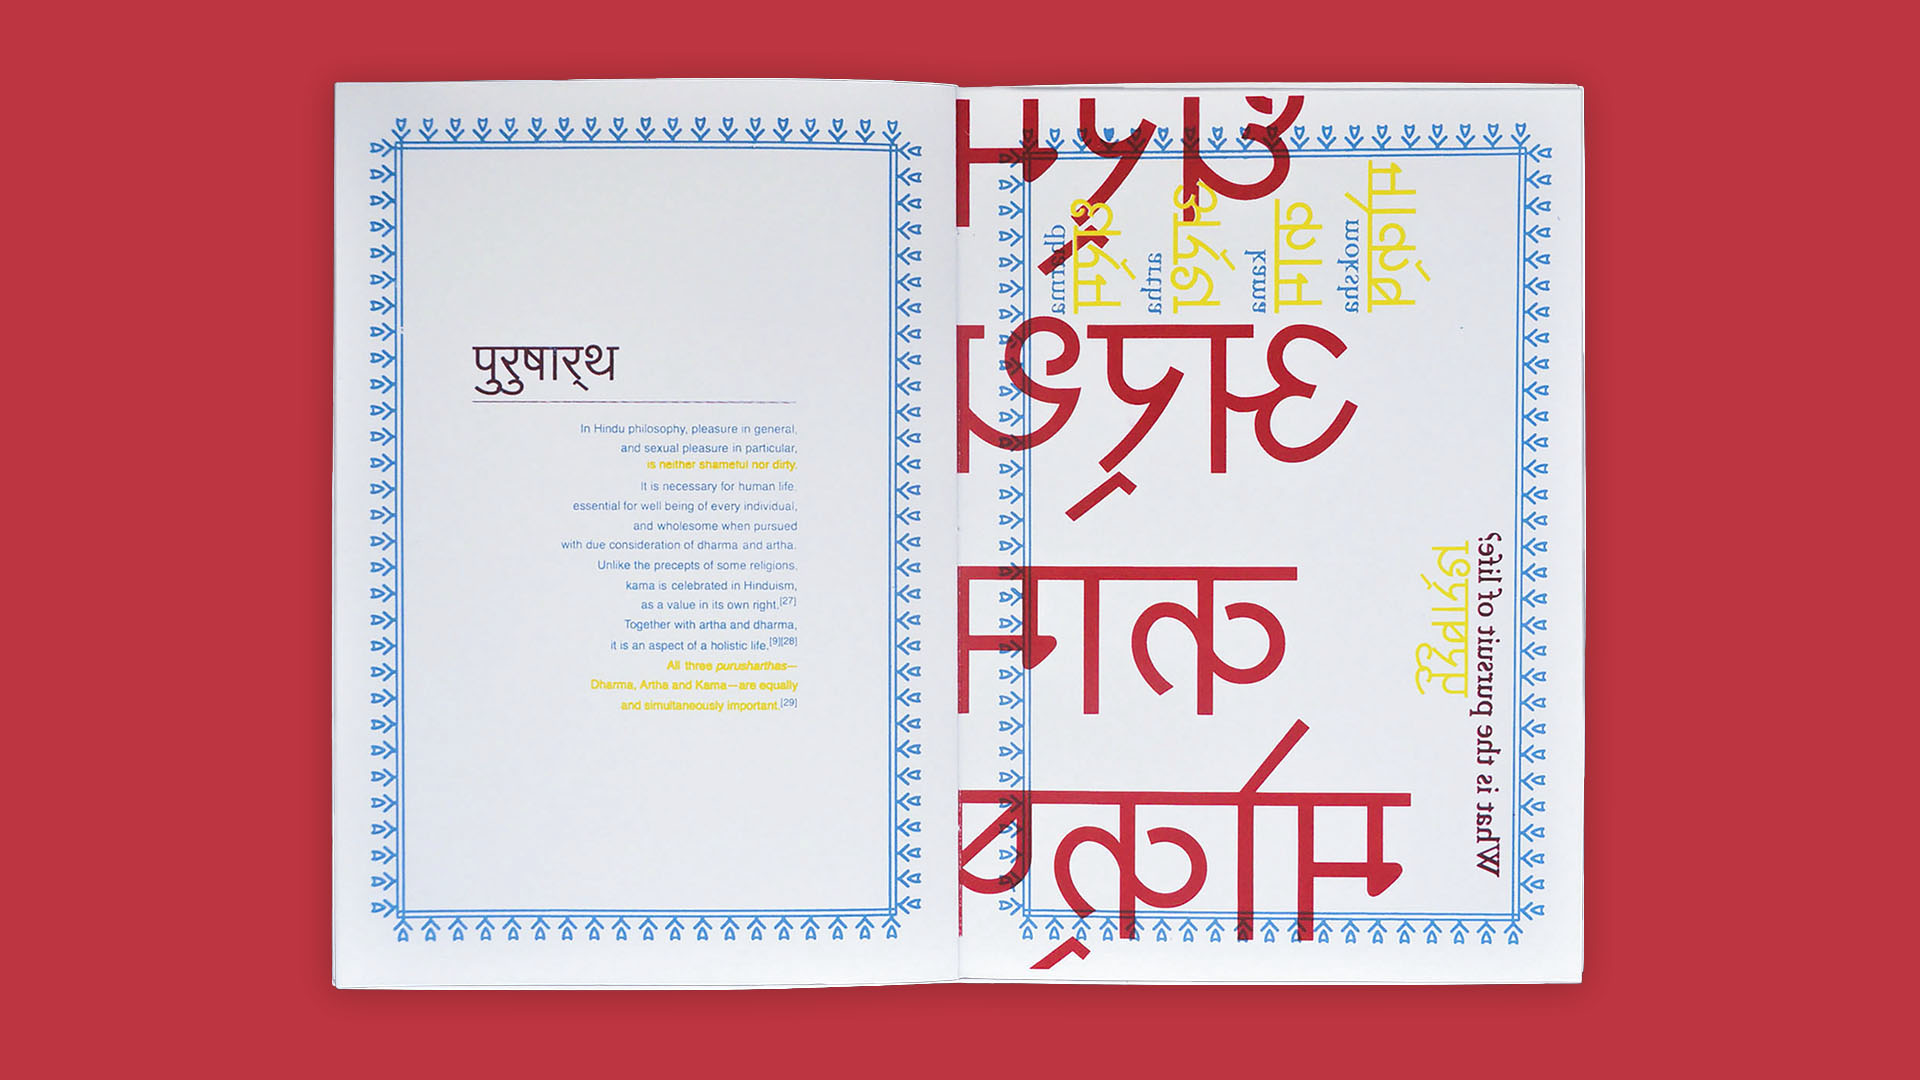 पुरुषार्‌थ
In Hindu philosophy, pleasure in general,
and sexual pleasure in particular,
is neither shameful nor dirty.
It is necessary for human life,
essential for well being of every individual,
and wholesome when pursued
with due consideration of dharma and artha.
Unlike the precepts of some religions,
kama is celebrated in Hinduism,
as a value in its own right.[27]
Together with artha and dharma,
it is an aspect of a holistic life.[9][28]
All three purusharthas—
Dharma, Artha and Kama—are equally
and simultaneously important.[29]
धर्‌म
dharma
अर्‌थ
artha
काम
kama
मोक्‌ष
moksha
पुरुषार्‌थ
What is the pursuit of life?
धर्‌म
अर्‌थ
काम
मोक्‌ष